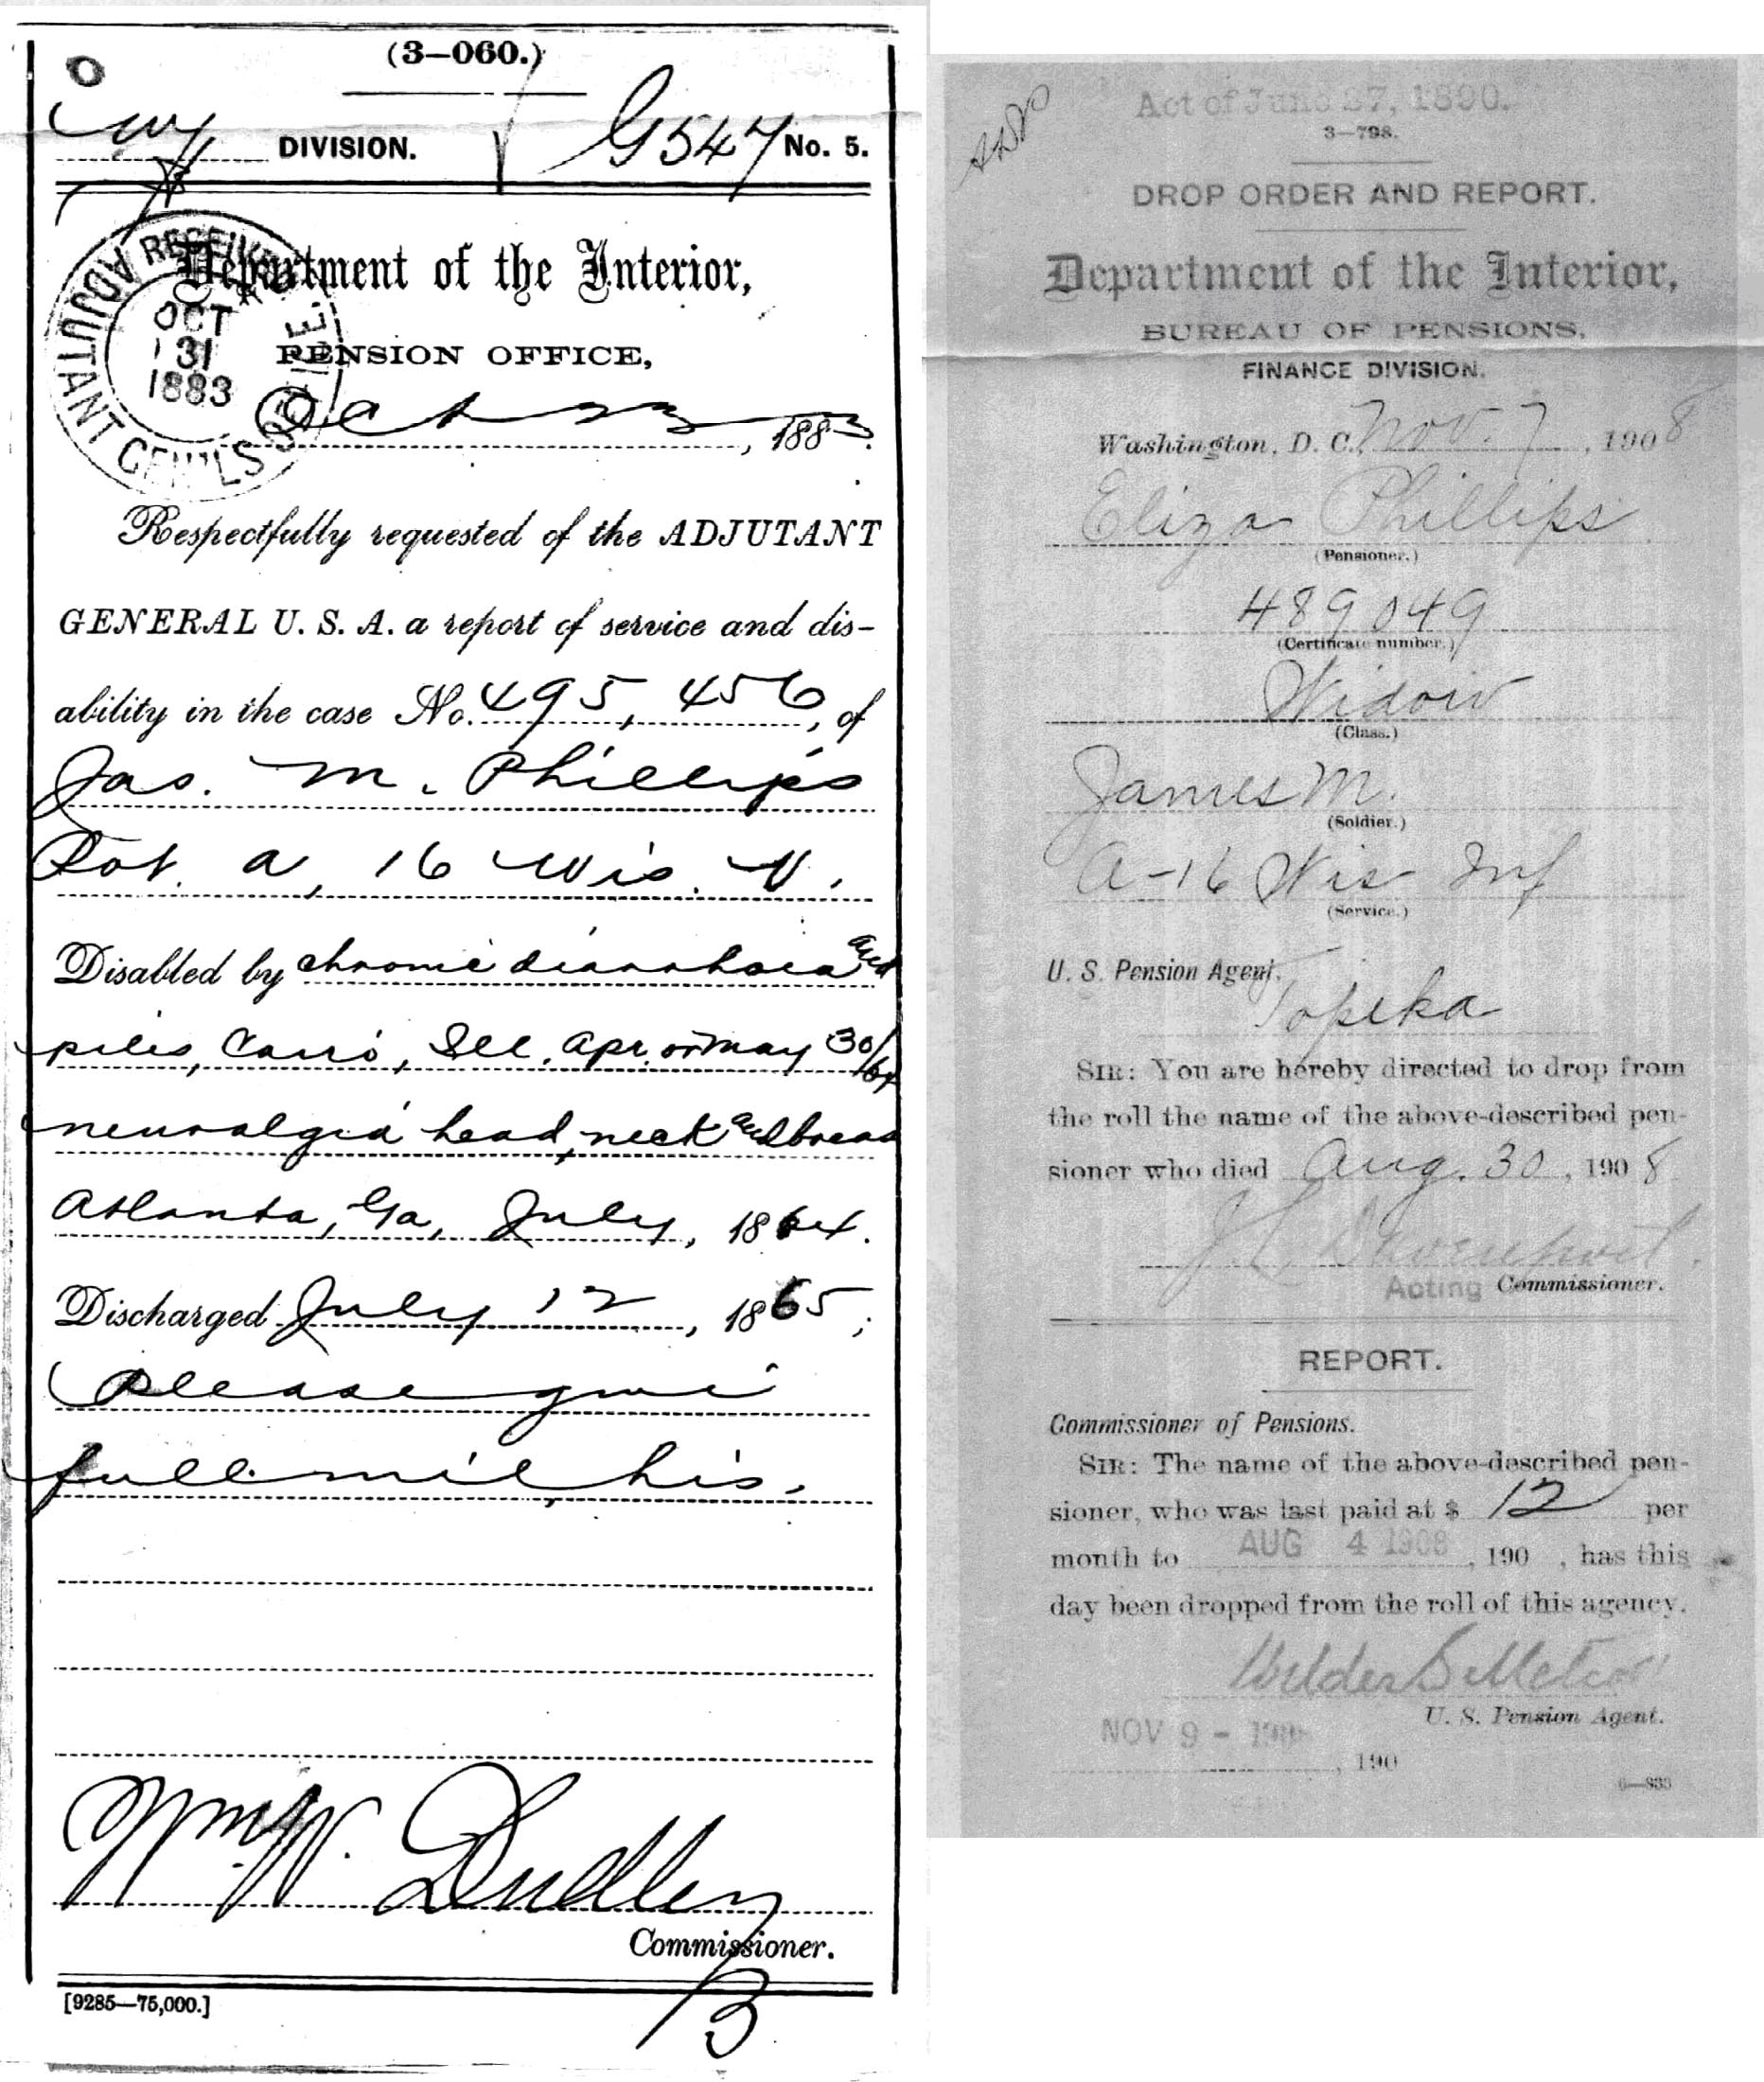 (3—060.)
DIVISION. G547 No. 5.
Department of the Interior,
RECEIVED ADJUTANT GEN'LS OFFICE
OCT
31
1883
PENSION OFFICE,
Oct 23, 1883.
Respectfully requested of the ADJUTANT
GENERAL U. S. A. a report of service and dis-
ability in the case No. 495,456, of
Jas. M. Phillips
Pvt. A, 16 Wis. V.
Disabled by chronic diarrhoea and
piles, Cairo, Ill. Apr. or May 30/64
neuralgia head, neck and breas
Atlanta, Ga, July, 1864.
Discharged July 12, 1865;
Please give
full mil, his.
Wm W. Dudley
Commissioner.
B
[9285—75,000.]
Act of June 27, 1890.
3—798.
DROP ORDER AND REPORT.
Department of the Interior,
BUREAU OF PENSIONS,
FINANCE DIVISION.
Washington, D. C., Nov. 7, 1908
Eliza Phillips
(Pensioner.)
489049
(Certificate number.)
Widow
(Class.)
James M.
(Soldier.)
A-16 Wis Inf
(Service.)
U. S. Pension Agent,
Topeka
SIR: You are hereby directed to drop from
the roll the name of the above-described pen-
sioner who died Aug. 30, 1908
J L Davenport.
Acting Commissioner.
REPORT.
Commissioner of Pensions.
SIR: The name of the above-described pen-
sioner, who was last paid at $ 12 per
month to AUG 4 1908, 190 , has this
day been dropped from the roll of this agency.
Wilder S Metcalf
U. S. Pension Agent.
NOV 9 - 1908
, 190
6—833